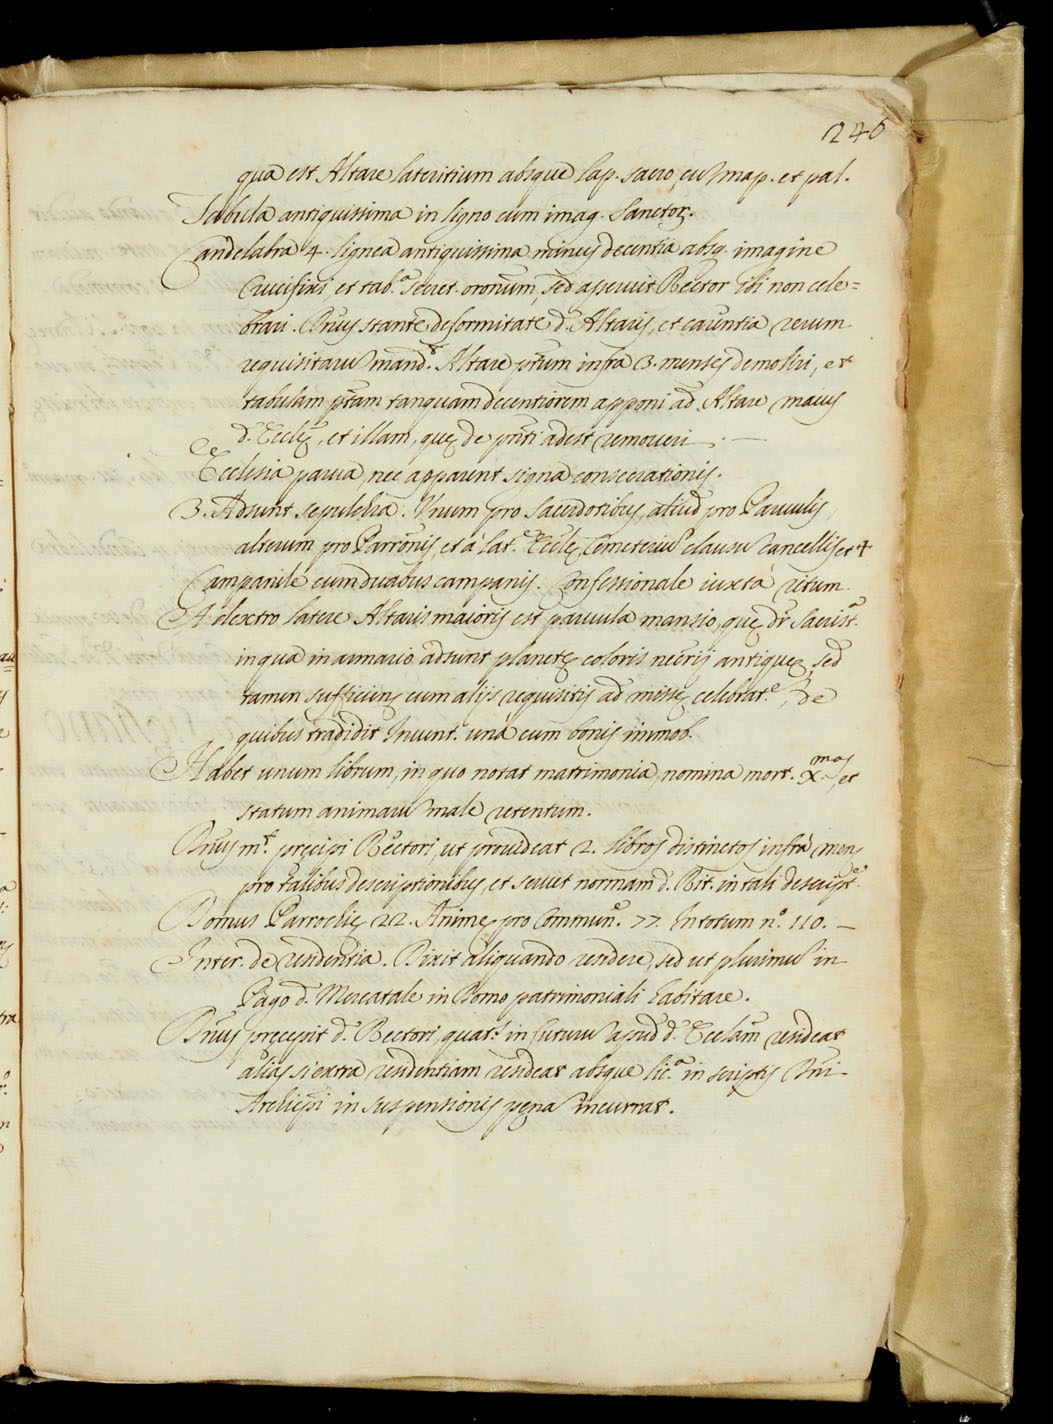 246
qua est Altare lateritium absque lap. sacro, cu map. et pal.
Tabula antiquissima in ligno cum imag. Sanctoꝝ.
Candelabra 4. lignea antiquissima minus decentia absq. imagine
Crucifixi, et tab.ᵃ secret. oronum, sed asseruit Rector ibi non cele=
brari. Dnus stante deformitate d. Altaris, et carentia rerum
requisitaru mand.ᵗ Altare ptum infra 3. menses demoliri, et
tabulam ptam tanquam decentiorem apponi ad Altare maius
d. Eccleę, et illam, quę de pnti adest removeri. —
Ecclesia parva, nec apparent signa consecrationis.
3. Adsunt sepulchra. Unum pro Sacerdotibus, aliud pro Parvulis,
alterum pro Parronis, et à lat.ᵉ Eccłę Cemeteriu clausu cancellis et +
Campanile cum duabus campanis. Confessionale iuxta ritum.
A dextro latere Altaris maioris est parvula mansio, quę dr Sacrist.ᵃ
in qua in armario adsunt planetę coloris necrij antiquę, sed
tamen sufficiens cum alijs requisitis ad missę celebrat.ᵉ, de
quibus tradidit Invent. unà cum bonis immob.
Habet unum librum, in quo notat matrimonia, nomina mort. X.ᵐᵒˢ, et
statum animaru male retentum.
Dnus m.ᵗ pręcipi Rectori, ut provideat 2. libros distinctos infrà mens.
pro talibus descriptionibus, et servet normam d. Rit. in tali descript.ᵉ
Domus Parrochię 22. Animę pro Commun.ᵉ 77. In totum n.º 110. —
Inter. de residentia. Dixit aliquando residere, sed ut plurimu in
Pago d. Mercatale in Domo patrimoniali habitare.
Dnus pręcepit d. Rectori, quat.ˢ in futuru apud d. Ecclam resideat
alias si extra residentiam resideat absque lic.ᵃ in scriptis Dni
Archiepi in suspensionis pęna incurrat.